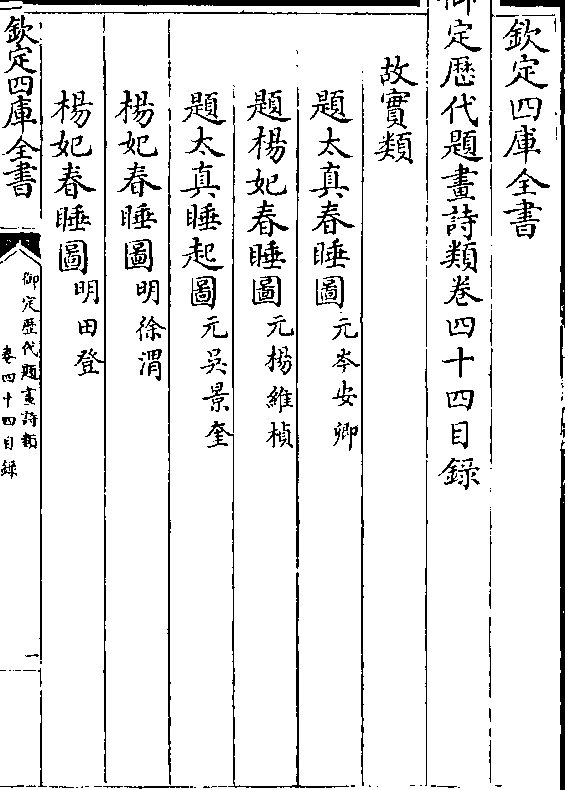 欽定四庫全書
御定歴代題畫詩類卷四十四目録
故實類
題太真春睡圖元岑安卿
題楊妃春睡圖元楊維楨
題太真睡起圖元吳景奎
楊妃春睡圖明徐渭
楊妃春睡圖明田登
欽定四庫全書
御定歴代題畫詩類
卷四十四目録
一